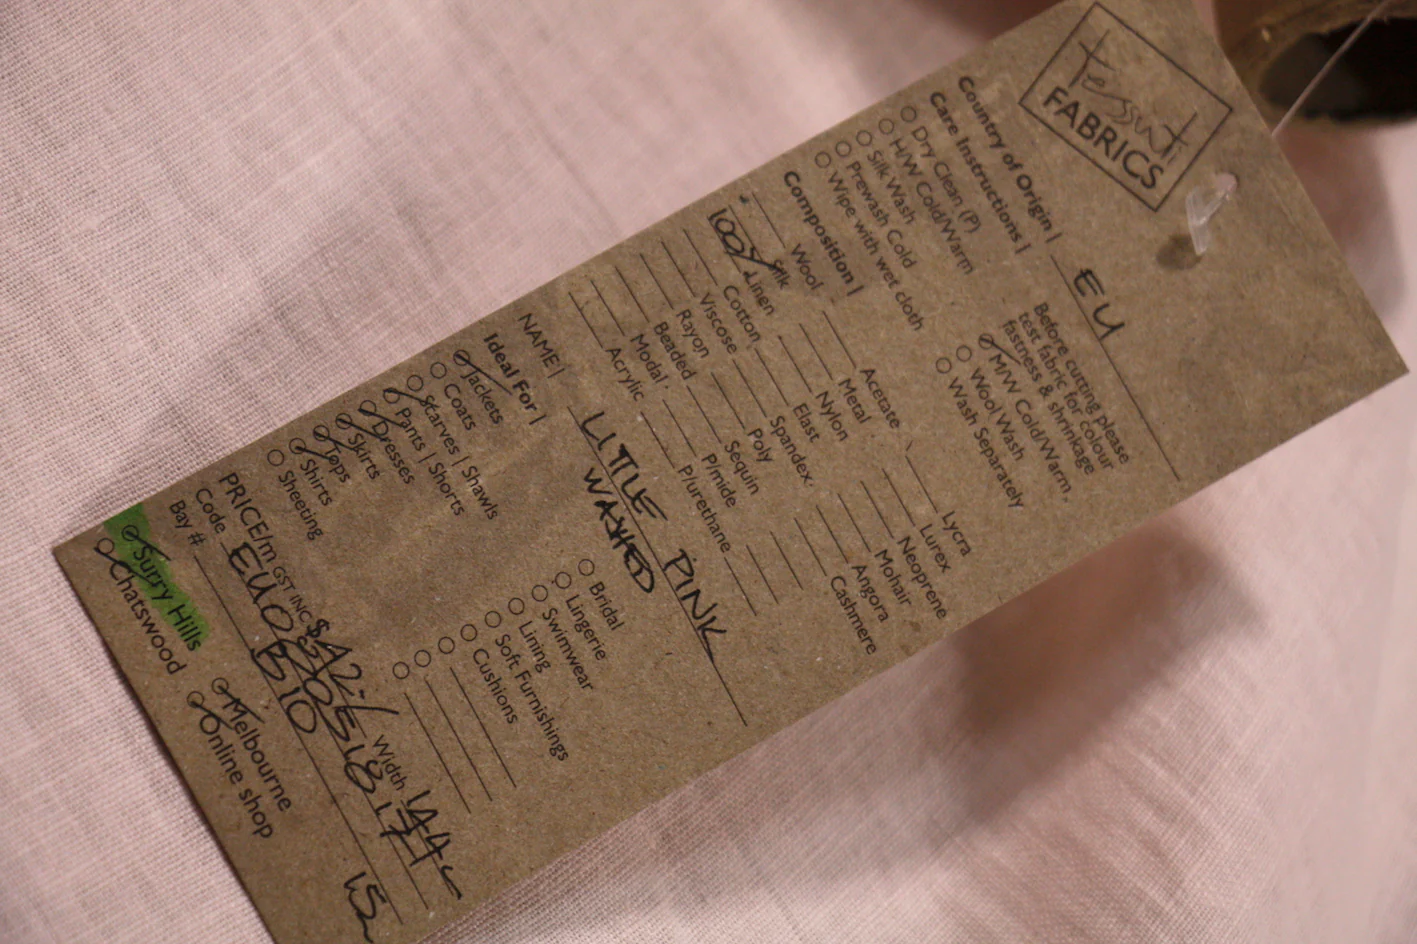 tessuti
FABRICS
Country of Origin | EU
Care Instructions |
Dry Clean (P)
H/W Cold/Warm
Silk Wash
Prewash Cold
Wipe with wet cloth
Before cutting please
test fabric for colour
fastness & shrinkage
M/W Cold/Warm.
Wool Wash
Wash Separately
Composition |
Wool
Silk
100% Linen
Cotton
Viscose
Rayon
Beaded
Modal
Acrylic
Acetate
Metal
Nylon
Elast
Spandex
Poly
Sequin
P/mide
P/urethane
Lycra
Lurex
Neoprene
Mohair
Angora
Cashmere
NAME | LITTLE PINK
WASHED
Ideal For |
Jackets
Coats
Scarves | Shawls
Pants | Shorts
Dresses
Skirts
Tops
Shirts
Sheeting
Bridal
Lingerie
Swimwear
Lining
Soft Furnishings
Cushions
PRICE/m GST INC $42.- Width 144c
Code
Bay # B10
Surry Hills
Chatswood
Melbourne
Online shop